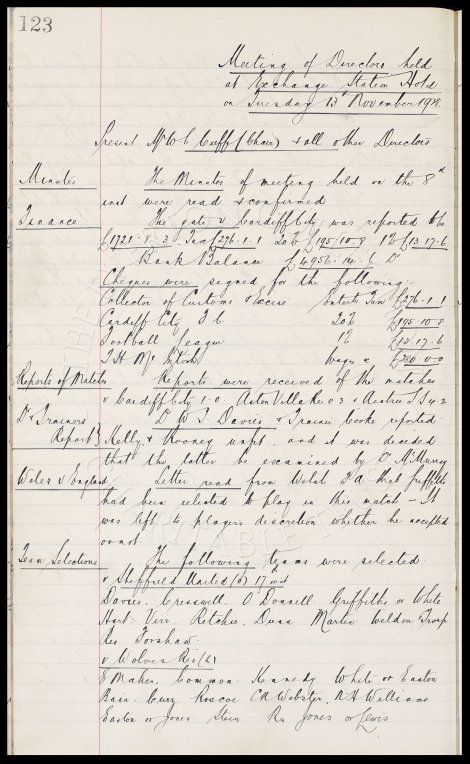 123
Meeting of Directors held
at Exchange Station Hotel
on Tuesday 13th November 1928
Present Mr W C Cuff (Chair) & all other Directors
Minutes The Minutes of meeting held on the 8th
inst were read & confirmed
Finance The gate v Cardiff City was reported to be
£1721.8.3 Tax £276.1.1 20% £195.10.8 1% £13.17.6
Bank Balance £4956.14.6 Dr
Cheques were signed for the following:-
Collector of Customs & Excise Entert Tax £276.1.1
Cardiff City F C 20% £195.10.8
Football League 1% £13.17.6
T.H. McIntosh wages &c
Reports of Matches Reports were received of the matches
v Cardiff City 1.0. Aston Villa Res 0.3 &
Dr & Trainers Dr W J Davies & Trainer Cooke reported
Report} Kelly & Rooney unfit, and it was decided
that the latter be examined by Dr McMurray
Wales v England Letter read from Welsh F.A. that Griffiths
had been selected to play in this match - It
was left to players discretion whether he accepted
or not.
Team Selections The following teams were selected
v Sheffield United (a) 17th inst
Davies. Cresswell. O'Donnell Griffiths or White
Hart. Virr. Ritchie. Dunn Martin Weldon Troup
Res Forshaw.
v Wolves Res (a)
E Maher. Common. Kennedy White or Easton
Bain. Curr Roscoe C A Webster. R.H Williams
Easton or Jones Stein Res Jones or Lewis